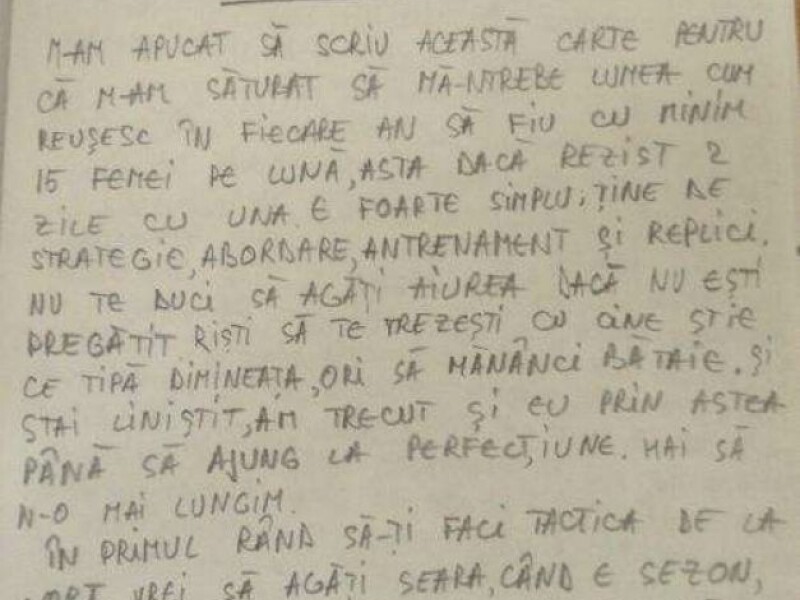 M-AM APUCAT SĂ SCRIU ACEASTĂ CARTE PENTRU
CĂ M-AM SĂTURAT SĂ MĂ-NTREBE LUMEA CUM
REUȘESC ÎN FIECARE AN SĂ FIU CU MINIM
15 FEMEI PE LUNĂ, ASTA DACĂ REZIST 2
ZILE CU UNA. E FOARTE SIMPLU; ȚINE DE
STRATEGIE, ABORDARE, ANTRENAMENT ȘI REPLICI.
NU TE DUCI SĂ AGĂȚI AIUREA DACĂ NU EȘTI
PREGĂTIT RIȘTI SĂ TE TREZEȘTI CU CINE ȘTIE
CE TIPĂ DIMINEAȚA, ORI SĂ MĂNÂNCI BĂTAIE. ȘI
STAI LINIȘTIT, AM TRECUT ȘI EU PRIN ASTEA
PÂNĂ SĂ AJUNG LA PERFECȚIUNE. HAI SĂ
N-O MAI LUNGIM.
ÎN PRIMUL RÂND SĂ-ȚI FACI TACTICA DE LA
VREI SĂ AGĂȚI SEARA, CÂND E SEZON,